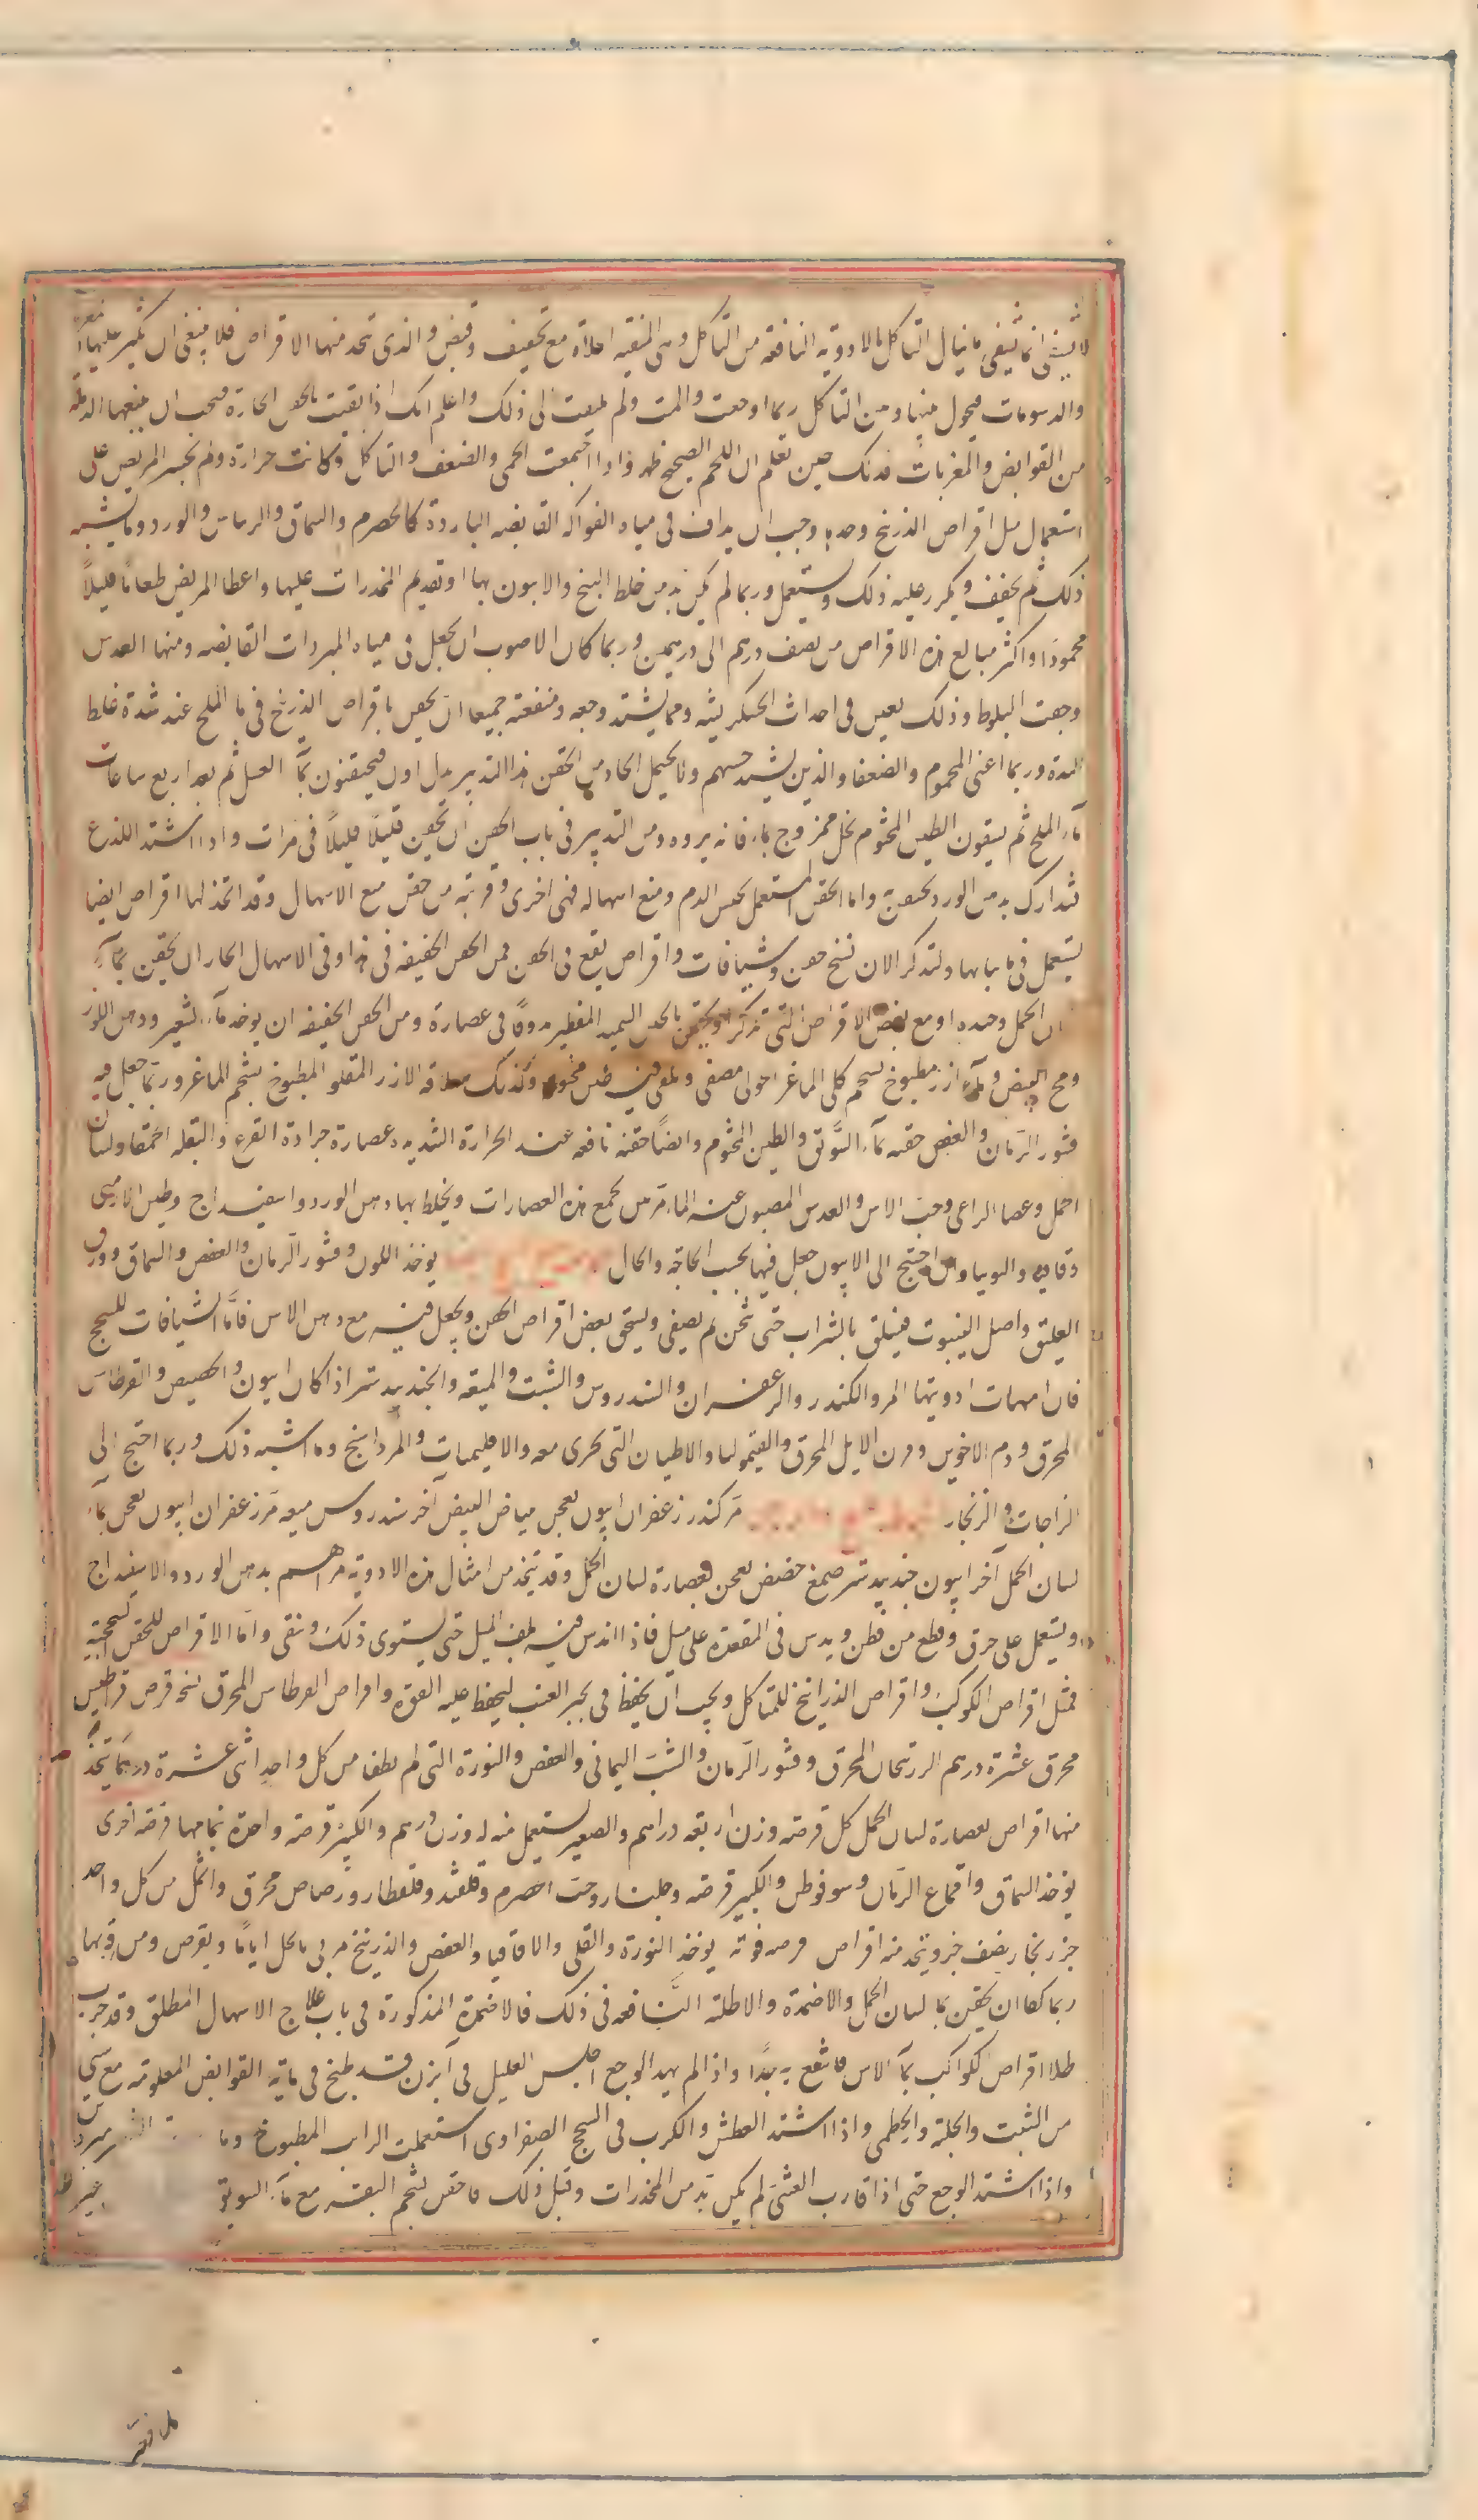 لا يشفى انما يشفى ما ينال التآكل بالادوية النافعه من التآكل وهى المنقيه اعلاه مع تجفيف وقبض والذى تتخذ منها الاقراص فلا ينبغى ان يكثر عليها
والدسومات فيحول بينها وبين التاكل ربما اوجعت والمت ولم يلتفت الى ذلك واعلم انك اذا نقيت بالحقن الحارة فيجب ان يتبعها
من القوابض والمغريات فذلك حين تعلم ان اللحم الصحيح ظهر واذا اجتمعت الحمى والضعف والتاكل وكانت حرارة ولم يجسر المريض على
استعمال مثل اقراص الزرنيخ وحدها وجب ان يداف فى مياه الفواكه القابضه الباردة كالحصرم والسماق والرمان والورد وما يشبه
ذلك ثم يجفف ويكرر عليه ذلك ويستعمل وربما لم يكن بد من خلط البنج والافيون بها او تقديم المخدرات عليها واعطا المريض طعاما قليلاً
محمودا واكثر مبالغ هذه الاقراص من نصف درهم الى درهمين وربما كان الاصوب ان يجعل فى مياه المبردات القابضه ومنها العدس
وجفت البلوط وذلك يعين فى احداث الخشكريشه ومما يشتد وجعه ومنفعته جميعا ان يحقن باقراص الزرنيخ فى ما الملح عند شدة غلظ
المدة وربما اغنى المحموم والضعفا والذين يشتد حسهم ولا يحتمل الحاد من الحقن هذا التدبير بدل اول فيحتقنون بمآ العسل ثم بعد اربع ساعات
بمآء الملح ثم يسقون الطين المختوم بخل ممزوج بماء فانه يبروه ومن التدبير فى باب الحقن ان يحقن قليلاً قليلاً فى مرات واذا اشتد اللذع
فتدارك بدهن الورد يحقن به واما الحقن المستعمل لحبس الدم ومنع اسهاله فهى اخرى وقريبة من حقن مع الاسهال وقد اتخذ لها اقراص ايضا
يستعمل فى مابها ولنذكر الان نسخ حقن وشيافات واقراص يقع فى الحقن فمن الحقن الخفيفه فى هذا وفى الاسهال الحار ان يحقن بمآء
لسان الحمل وحده او مع بعض الاقراص التى تذكر او يحقن بالحل السميد الفطير مدوفا فى عصارة ومن الحقن الخفيفه ان يوخذ مآء الشعير ودهن اللوز
ومح البيض ومآء ارز مطبوخ بشحم كلى الماعز حولى مصفى ويلقى فيه طين مختوم وكذلك سلاقه الارز المقلو المطبوخ بشحم الماعز وربما جعل فيه
قشور الرمان والعفص حقنه بمآء السويق والطين المختوم وايضا حقنه نافعه عند الحرارة الشديده عصارة جرادة القرع والبقله الحمقا ولسان
الحمل وعصا الراعى وحب الاس والعدس المصبوب عنه الما مرتين يجمع هذه العصارات ويخلط بها دهن الورد واسفيداج وطين الارمنى
واقاقيا والتوتيا وان احتيج الى الافيون جعل فيها بحسب الحاجة والحال يوخذ اللون وقشور الرمان والعفص والسماق وورق
العليق واصل الينبوت فيسلق بالشراب حتى ثخن ثم يصفى ويسحق بعض اقراص الحقن ويجعل فيه مع دهن الاس فامَّا الشيافات للسحج
فان امهات ادويتها المر والكندر والزعفران والسندروس والشبت والميعه والجندبيدستر اذا كان افيون والحضض والقرطاس
المحرق ودم الاخوين وقرن الايل المحرق والقيموليا والاطيان التى تجرى معه والاقليميات والمرداسنج وما اشبه ذلك وربما احتيج الى
الزاجات والزنجار مر كندر زعفران افيون يعجن ببياض البيض آخر سندروس ميعه مر زعفران افيون يعجن بمآء
لسان الحمل آخر افيون جندبيدستر صمغ حضض يعجن بعصارة لسان الحمل وقد يتخذ من امثال هذه الادويه مراهم بدهن الورد والاسفيداج
ويستعمل على خرق وقطع من قطن ويدس فى المقعدة على ميل فاذا اندس فيه لف الميل حتى يستوى ذلك وينقى واما الاقراص للحقن السحجية
فمثل اقراص الكوكب واقراص الزرانيخ للمتاكل ويجب ان يحفظ فى بحير العنب ليحفظ عليه القوة واقراص القرطاس المحرق نسخه قرص قراطيس
محرق عشرة درهم الزرنيخان المحرق وقشور الرمان والشب اليمانى والعفص والنورة التى لم يطفا من كل واحد اثنى عشرة درهما يتخذ
منها اقراص بعصارة لسان الحمل كل قرصه وزن اربعه دراهم والصغير يستعمل منه وزن درهم والكبير قرصه واحدة بتمامها قرصه اخرى
يوخذ السماق واقماع الرمان وسوفوطس والكبير قرصه وجلنار وحب الحصرم وقلقند وقلقطار ورصاص محرق واثمد من كل واحد
جزو زنجار نصف جزو يتخذ منه اقراص قرصه قوية يوخذ النورة والقلى والاقاقيا والعفص والزرنيخ مربى بالخل اياما ويقرص ومن قوبها
ربما كفا ان يحقن بما لسان الحمل والاضمدة والاطلية النافعه فى ذلك فالاضمدة المذكورة فى باب علاج الاسهال المطلق وقد جرب
طلا اقراص الكواكب بمآء الاس فانتفع به جدًا واذا لم يهد الوجع اجلس العليل فى ابزن قد طبخ فى مايه القوابض المعلومه مع شى
من الشبت والحلبه والخطمى واذا اشتد العطش والكرب فى السحج الصفراوى استعملت الرايب المطبوخ وما
واذا اشتد الوجع حتى اذا قارب الغشى لم يكن بد من المخدرات وقبل ذلك فاحقن بشحم البقر مع مآء السويق